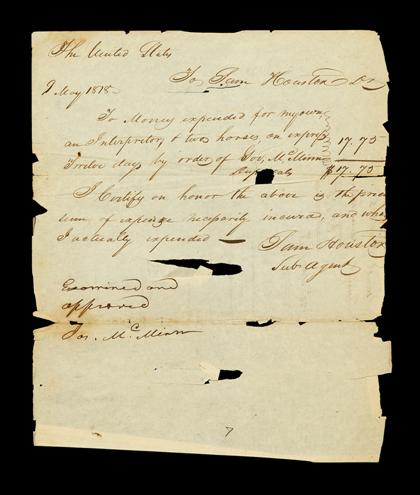 The United States
To Sam Houston Dr
9 May 1818
To Money expended for my own
an Interpreter & two horses, on express 17.75
Twelve days by order of Gov. McMinn
$17.75
I Certify on honor the above is the precise
sum of expense necessarily incurred, and what
I actually expended — Sam Houston
Sub Agent
Examined and
approved
Jos. McMinn
7